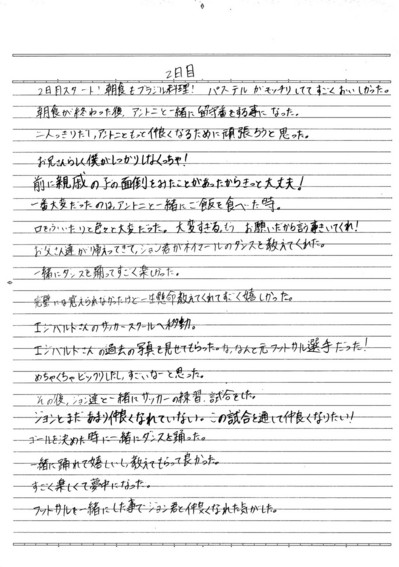 2日目
2日目スタート!朝食もブラジル料理! パステルがモッチリしててすごくおいしかった。
朝食が終わった後、アントニと一緒に留守番をする事になった。
二人っきりだし、アントニともっと仲良くなるために頑張ろうと思った。
お兄さんらしく僕がしっかりしなくっちゃ!
前に親戚の子の面倒をみたことがあったからきっと大丈夫!
一番大変だったのは、アントニと一緒にご飯を食べた時。
口をふいたりと色々と大変だった。大変すぎる。もう お願いだから言う事きいてくれ!
お父さん達が帰ってきて、ジョン君がネイマールのダンスを教えてくれた。
一緒にダンスを踊ってすごく楽しかった。
完璧には覚えられなかったけど一生懸命教えてくれてすごく嬉しかった。
エジバルドさんのサッカースクールへ移動。
エジバルドさんの過去の写真を見せてもらった。な、なんと元フットサル選手だった!
めちゃくちゃビックリしたし、すごいなーと思った。
その後、ジョン達と一緒にサッカーの練習、試合をした。
ジョンとまだあまり仲良くなれていない。この試合を通して仲良くなりたい!
ゴールを決めた時に一緒にダンスを踊った。
一緒に踊れて嬉しいし、教えてもらって良かった。
すごく楽しくて夢中になった。
フットサルを一緒にした事でジョン君と仲良くなれた気がした。